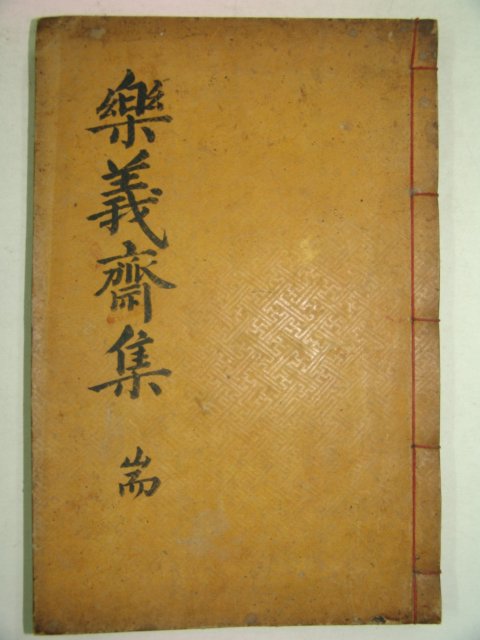 樂義齋集
耑